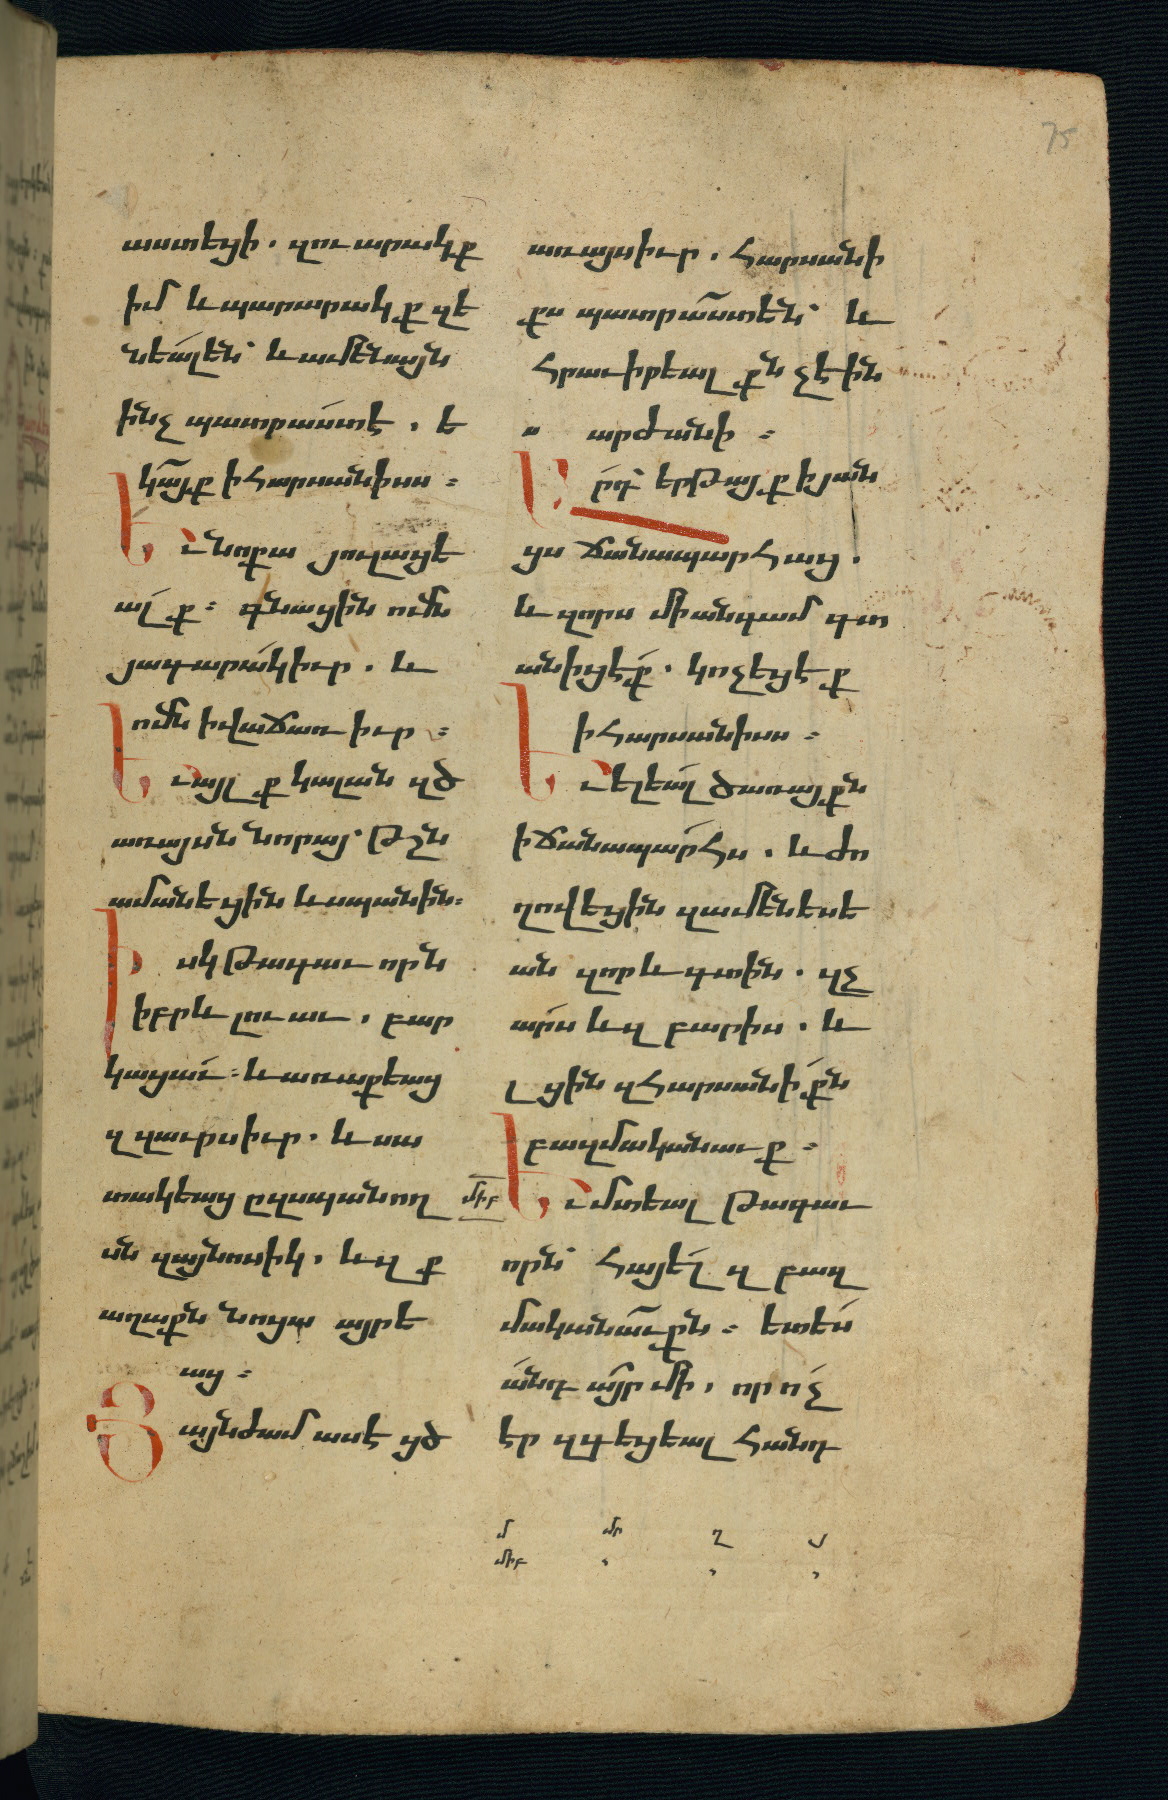 աստեցի. զուարակք
իմ և պարարակք զե
նեալեն՝ և ամենայն
ինչ պատրաստ է. ե
կայք ի հարսանիսս։
Եւ նոքա յուլացե
ալք։ գնացին ոմն
յագարակ իւր. և
ոմն ի վաճառ իւր։
Եւ այլք կալան զծ
առայսն նորայ՝ թշն
ամանեցին և սպանին։
Իսկ թագաւորն
իբրև լուաւ. բար
կացաւ։ և առաքեաց
զզաւրս իւր. և սա
տակեաց ըզսպանող
սն զայնոսիկ. և զք
աղաքն նոցա այրե
աց։
Յայնժամ ասէ ցծ
առայսիւր. հարսանի
քս պատրաստ են՝ և
հրաւիրեալքն չէին
արժանի։
Արդ՝ երթայք ի յան
ցս ճանապարհաց.
և զորս միանգամ գտ
անիցէք. կոչեցէք
ի հարսանիսս։
Եւ ելեալ ծառայքն
ի ճանապարհս. և ժո
ղովեցին զամենեսե
ան զոր և գտին. զչ
արս և զբարիս. և
լցին զհարսանիքն
բազմականաւք։
միբ
Եւ մտեալ թագաւ
որն՝ հայել զբազ
մականաւքն։ ետես
անդ այր մի. որ ոչ
էր զգեցեալ հանդ
մ մր ղ յ
միբ
75